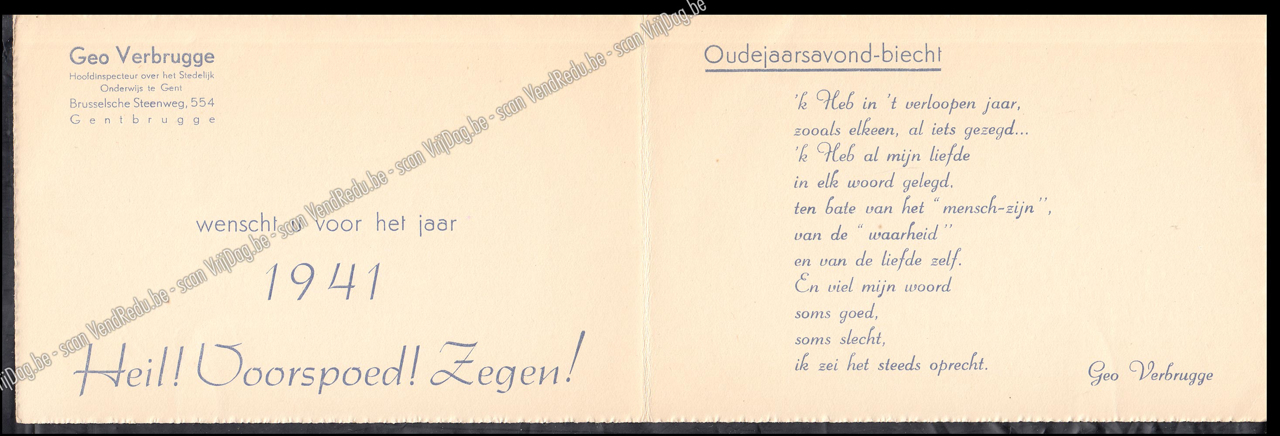 Geo Verbrugge
Hoofdinspecteur over het Stedelijk
Onderwijs te Gent
Brusselsche Steenweg, 554
Gentbrugge
wenscht u voor het jaar
1941
Heil! Voorspoed! Zegen!
Oudejaarsavond-biecht
'k Heb in 't verloopen jaar,
zooals elkeen, al iets gezegd...
'k Heb al mijn liefde
in elk woord gelegd.
ten bate van het "mensch-zijn",
van de "waarheid"
en van de liefde zelf.
En viel mijn woord
soms goed,
soms slecht,
ik zei het steeds oprecht.
Geo Verbrugge
VrijDag.be - scan VendRedu.be - scan VrijDag.be - scan VendRedu.be - scan VrijDag.be - scan VendRedu.be - scan VrijDag.be - scan VendRedu.be - scan VrijDag.be